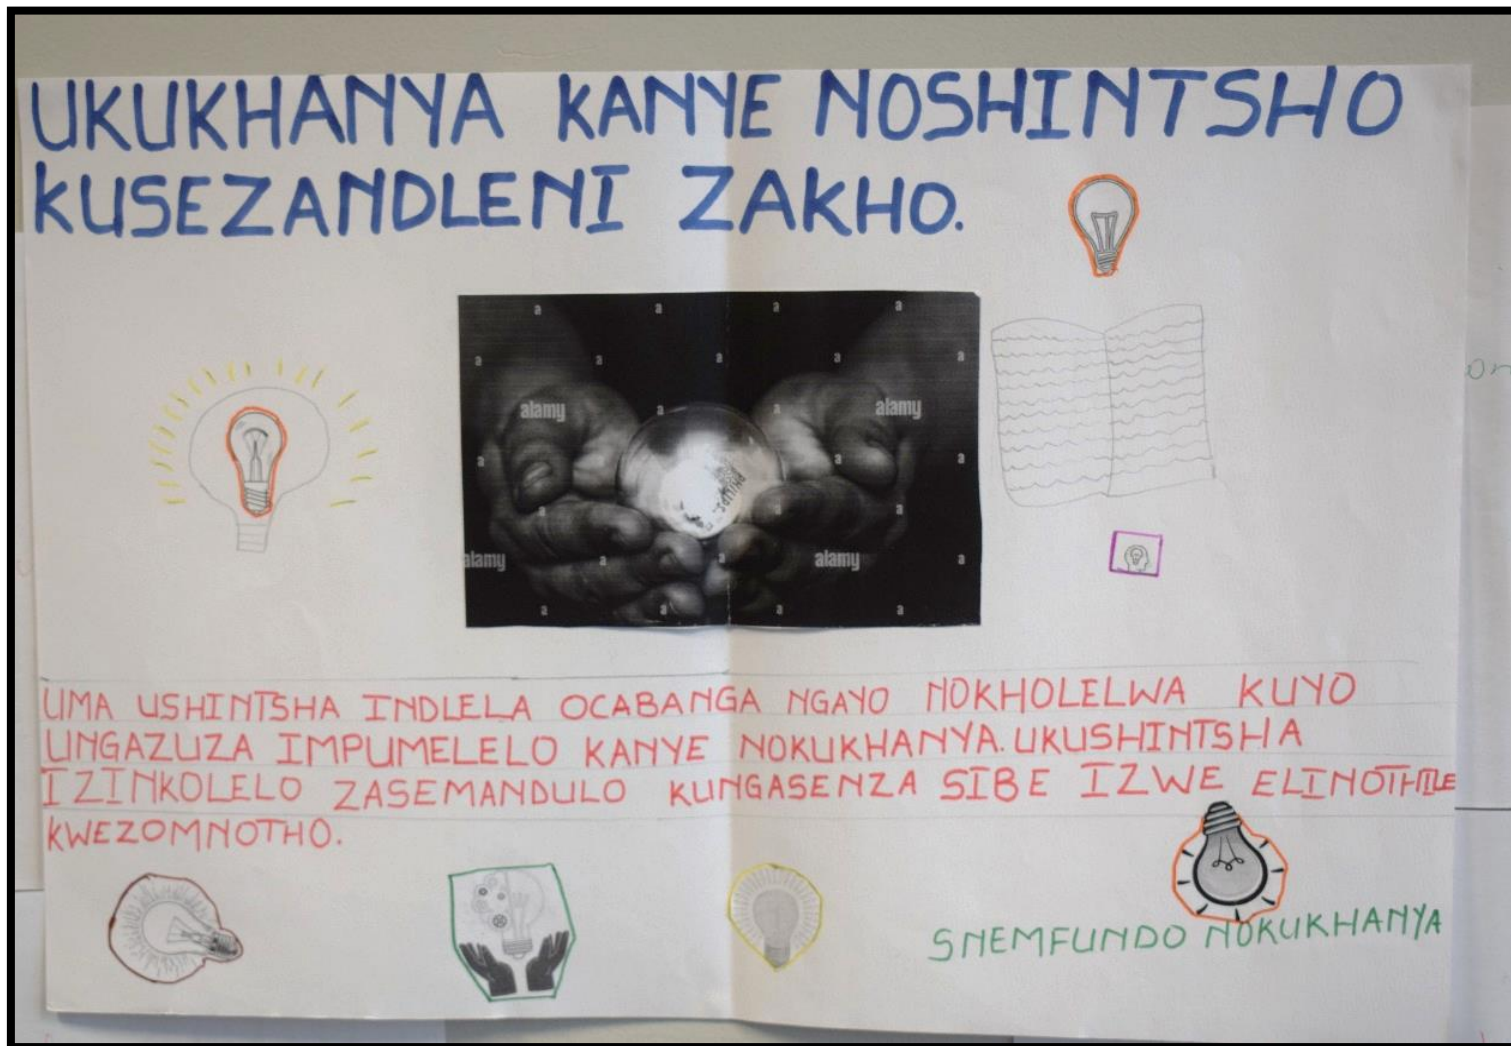 UKUKHANYA KANYE NOSHINTSHO
KUSEZANDLENI ZAKHO.
alamy
alamy
alamy
alamy
PHILIPS
UMA USHINTSHA INDLELA OCABANGA NGAYO NOKHOLELWA KUYO
UNGAZUZA IMPUMELELO KANYE NOKUKHANYA. UKUSHINTSHA
IZINKOLELO ZASEMANDULO KUNGASENZA SIBE IZWE ELINOTHILE
KWEZOMNOTHO.
SNEMFUNDO NOKUKHANYA